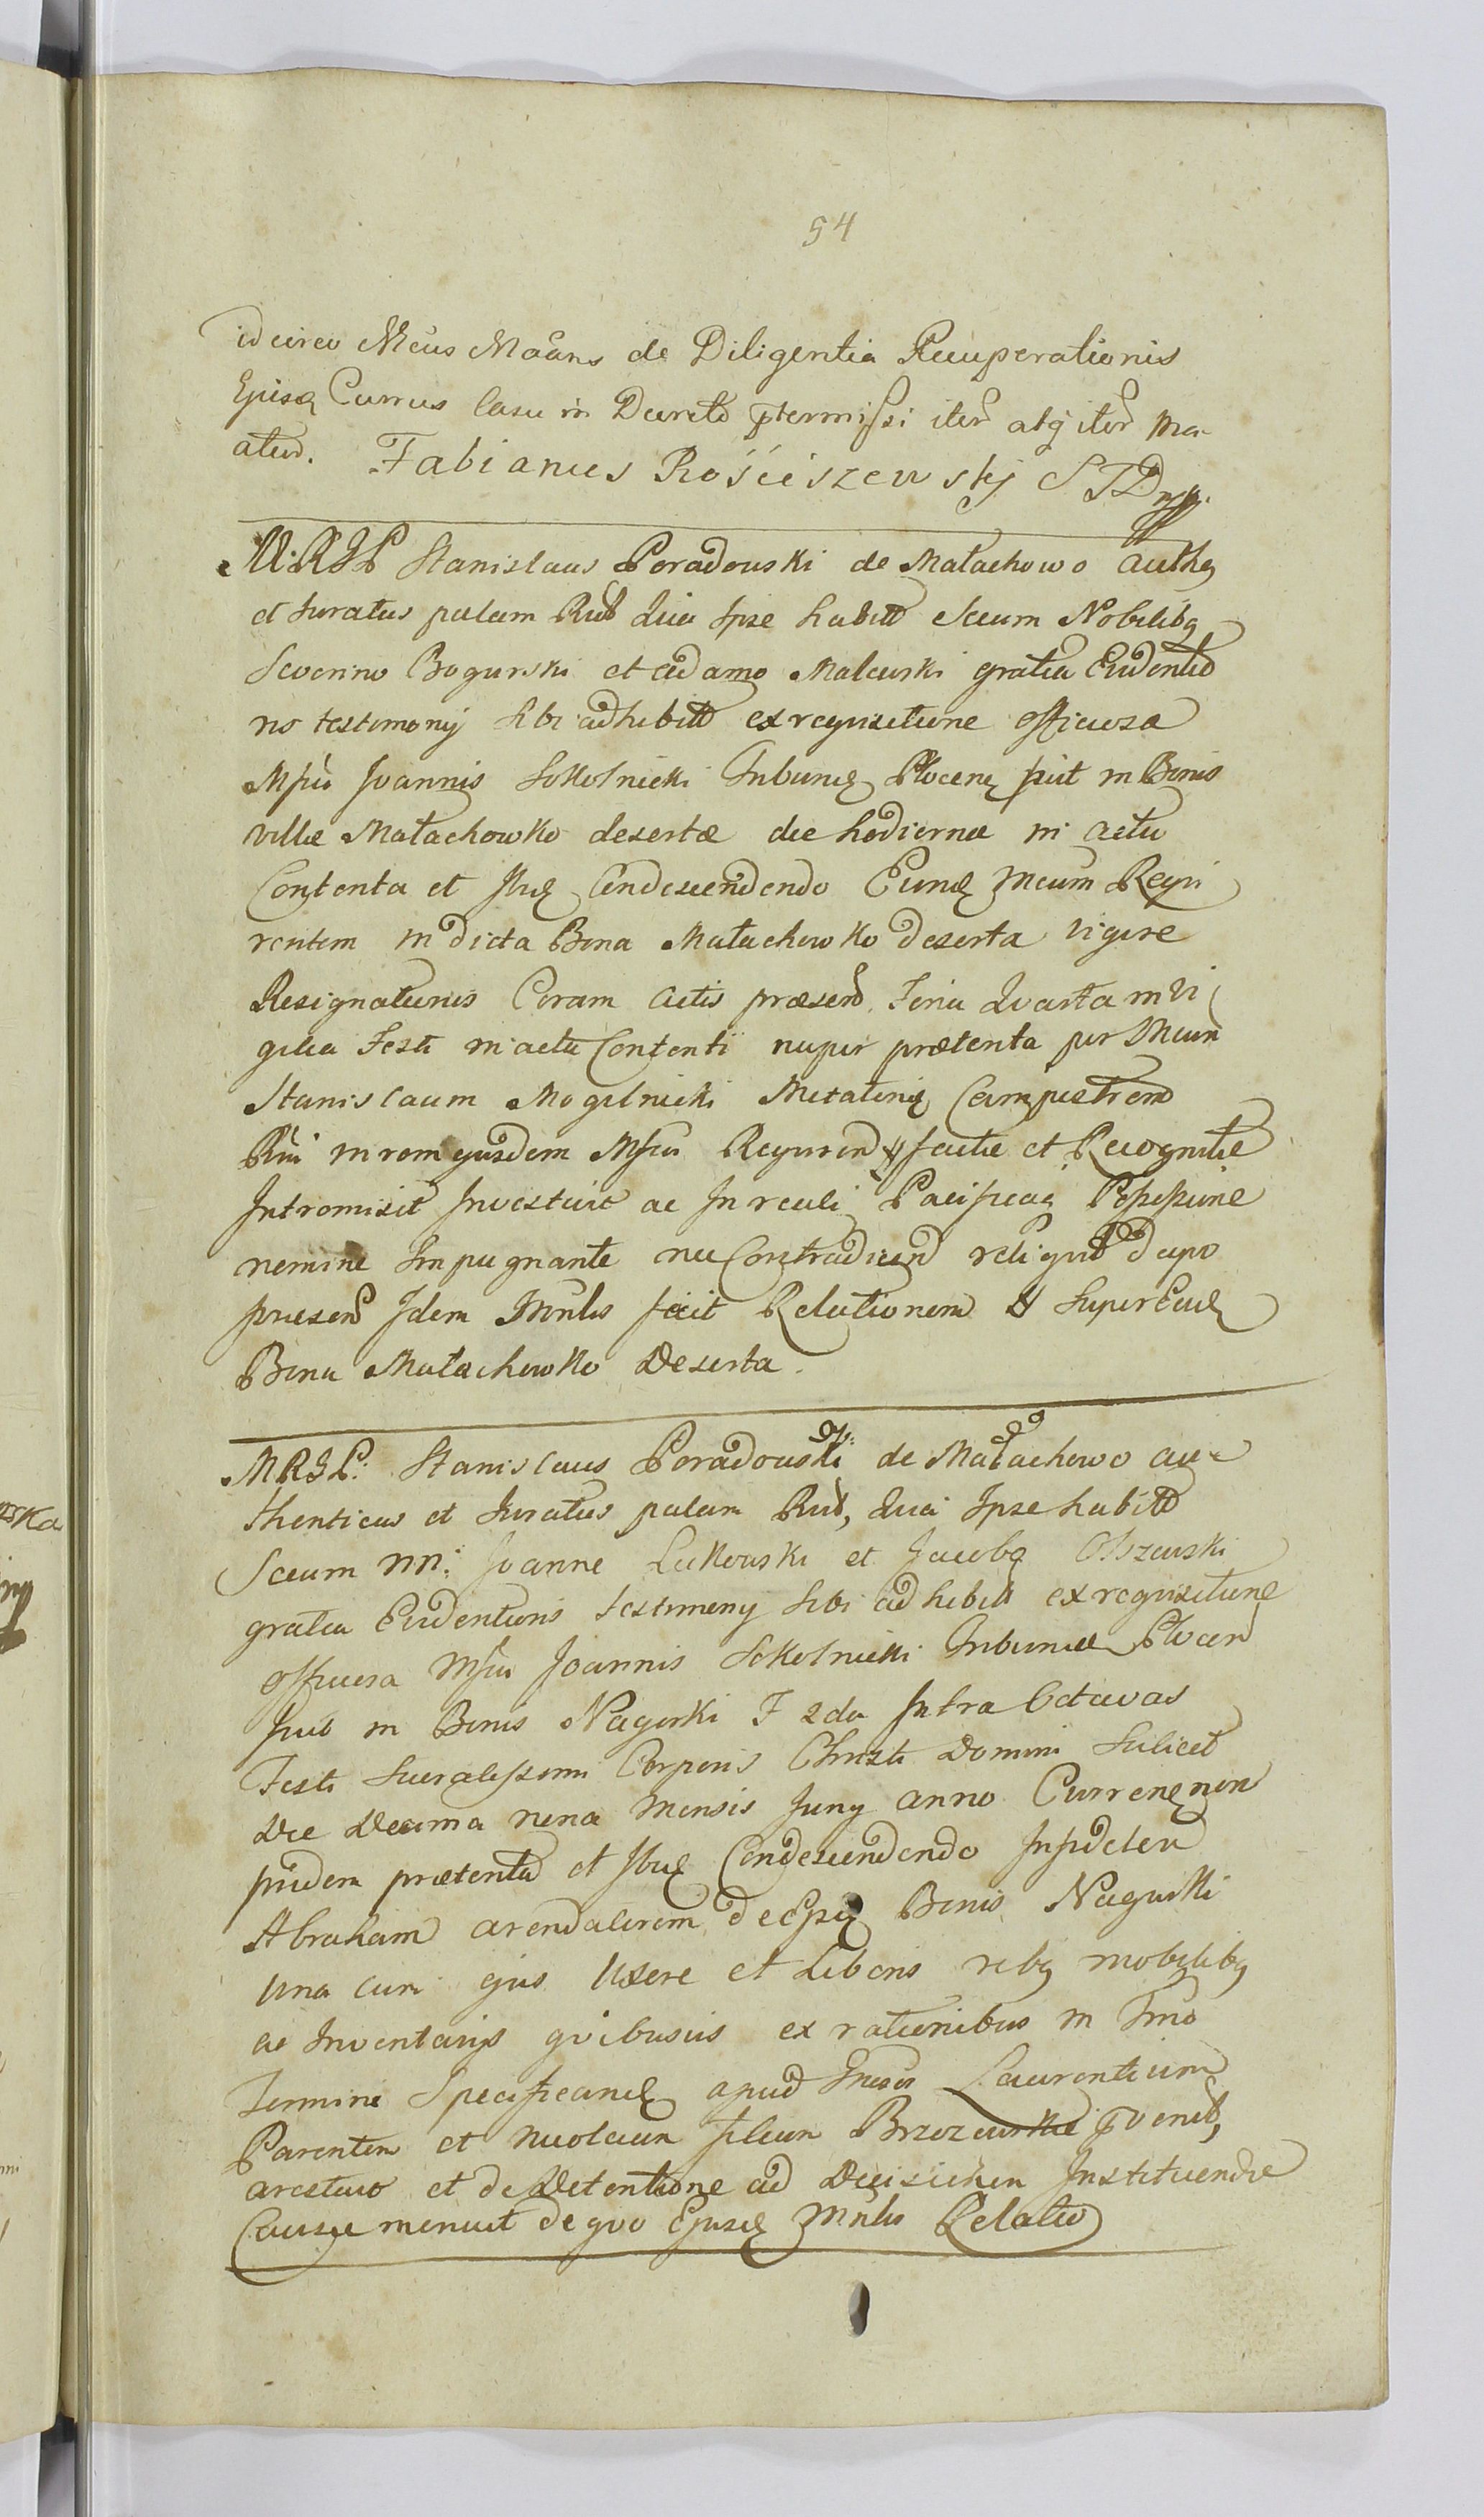 54
idcirco Meus Moans de Diligentia Recuperationis
Ejusq Currus Casu in Decreto ptermissi iter atq iter Ma-
atur. Fabianus Rościszewskj STD mp.
M.RGL Stanislaus Poradouski de Małachowo auth
et Juratus palam Rub Quia Ipse habitt secum Nobilibq
Severino Bogurski et adamo Maleuski gratia Evidentio
ris testimonij sibi adhibitt ex requisitione officiosa
Mfici Joannis Sokolnicki Tribuni Plocen fuit in Bonis
villae Małachowko desertae die hodierna in actu
Contenta et Ibiq Condescendendo Eund Mcum Requi
rentem in dicta Bona Małachowko deserta vigore
Resignationis Coram actis praesen Feria Quarta in Vi
gilia Festi in actu Contenti nuper praetenta per Mcum
Stanislaum Mogilnicki Metatorie Campestrem
Rni in rem ejusdem Mfici Requiren factae et Recognitae
Intromisit Investivit ac In reali Pacificaq Possessione
nemine Impugnante nec Contradicen reliquit de quo
praesen Idem Mnlis fecit Relationem Super Ead
Bona Małachowko Deserta.
MRGL: Stanislaus Poradouski de Małachowo au-
thenticus et Juratus palam Rub, Quia Ipse habitt
Secum NN: Joanne Lukouski et Jacobo Olszeuski
gratia Evidentioris testimonij sibi adhibitt ex requisitione
officiosa Mfici Joannis Sokolnicki Tribuni Plocen
fuit in Bonis Nagorki F 2da Intra Octavas
Festi Sacratissimi Corporis Christi Domini Scilicet
Die Decima nona Mensis Junij anno Curren non
pridem praetenta et Ibiq Condescendendo Infidelem
Abraham arendatorem de Ejsq Bonis Nagurki
una cum ejus Uxore et Liberis rebq mobilibq
ac Inventarijs quibusvis ex rationibus in Tmo
Termino Specificand apud Gnosos Laurentium
Parentem et Nicolaum filium Brzozeuskie pvenit,
arestavit et de Detentione ad Decisionem Instituendae
Causae monuit de quo Ejusd Mnlis Relatio